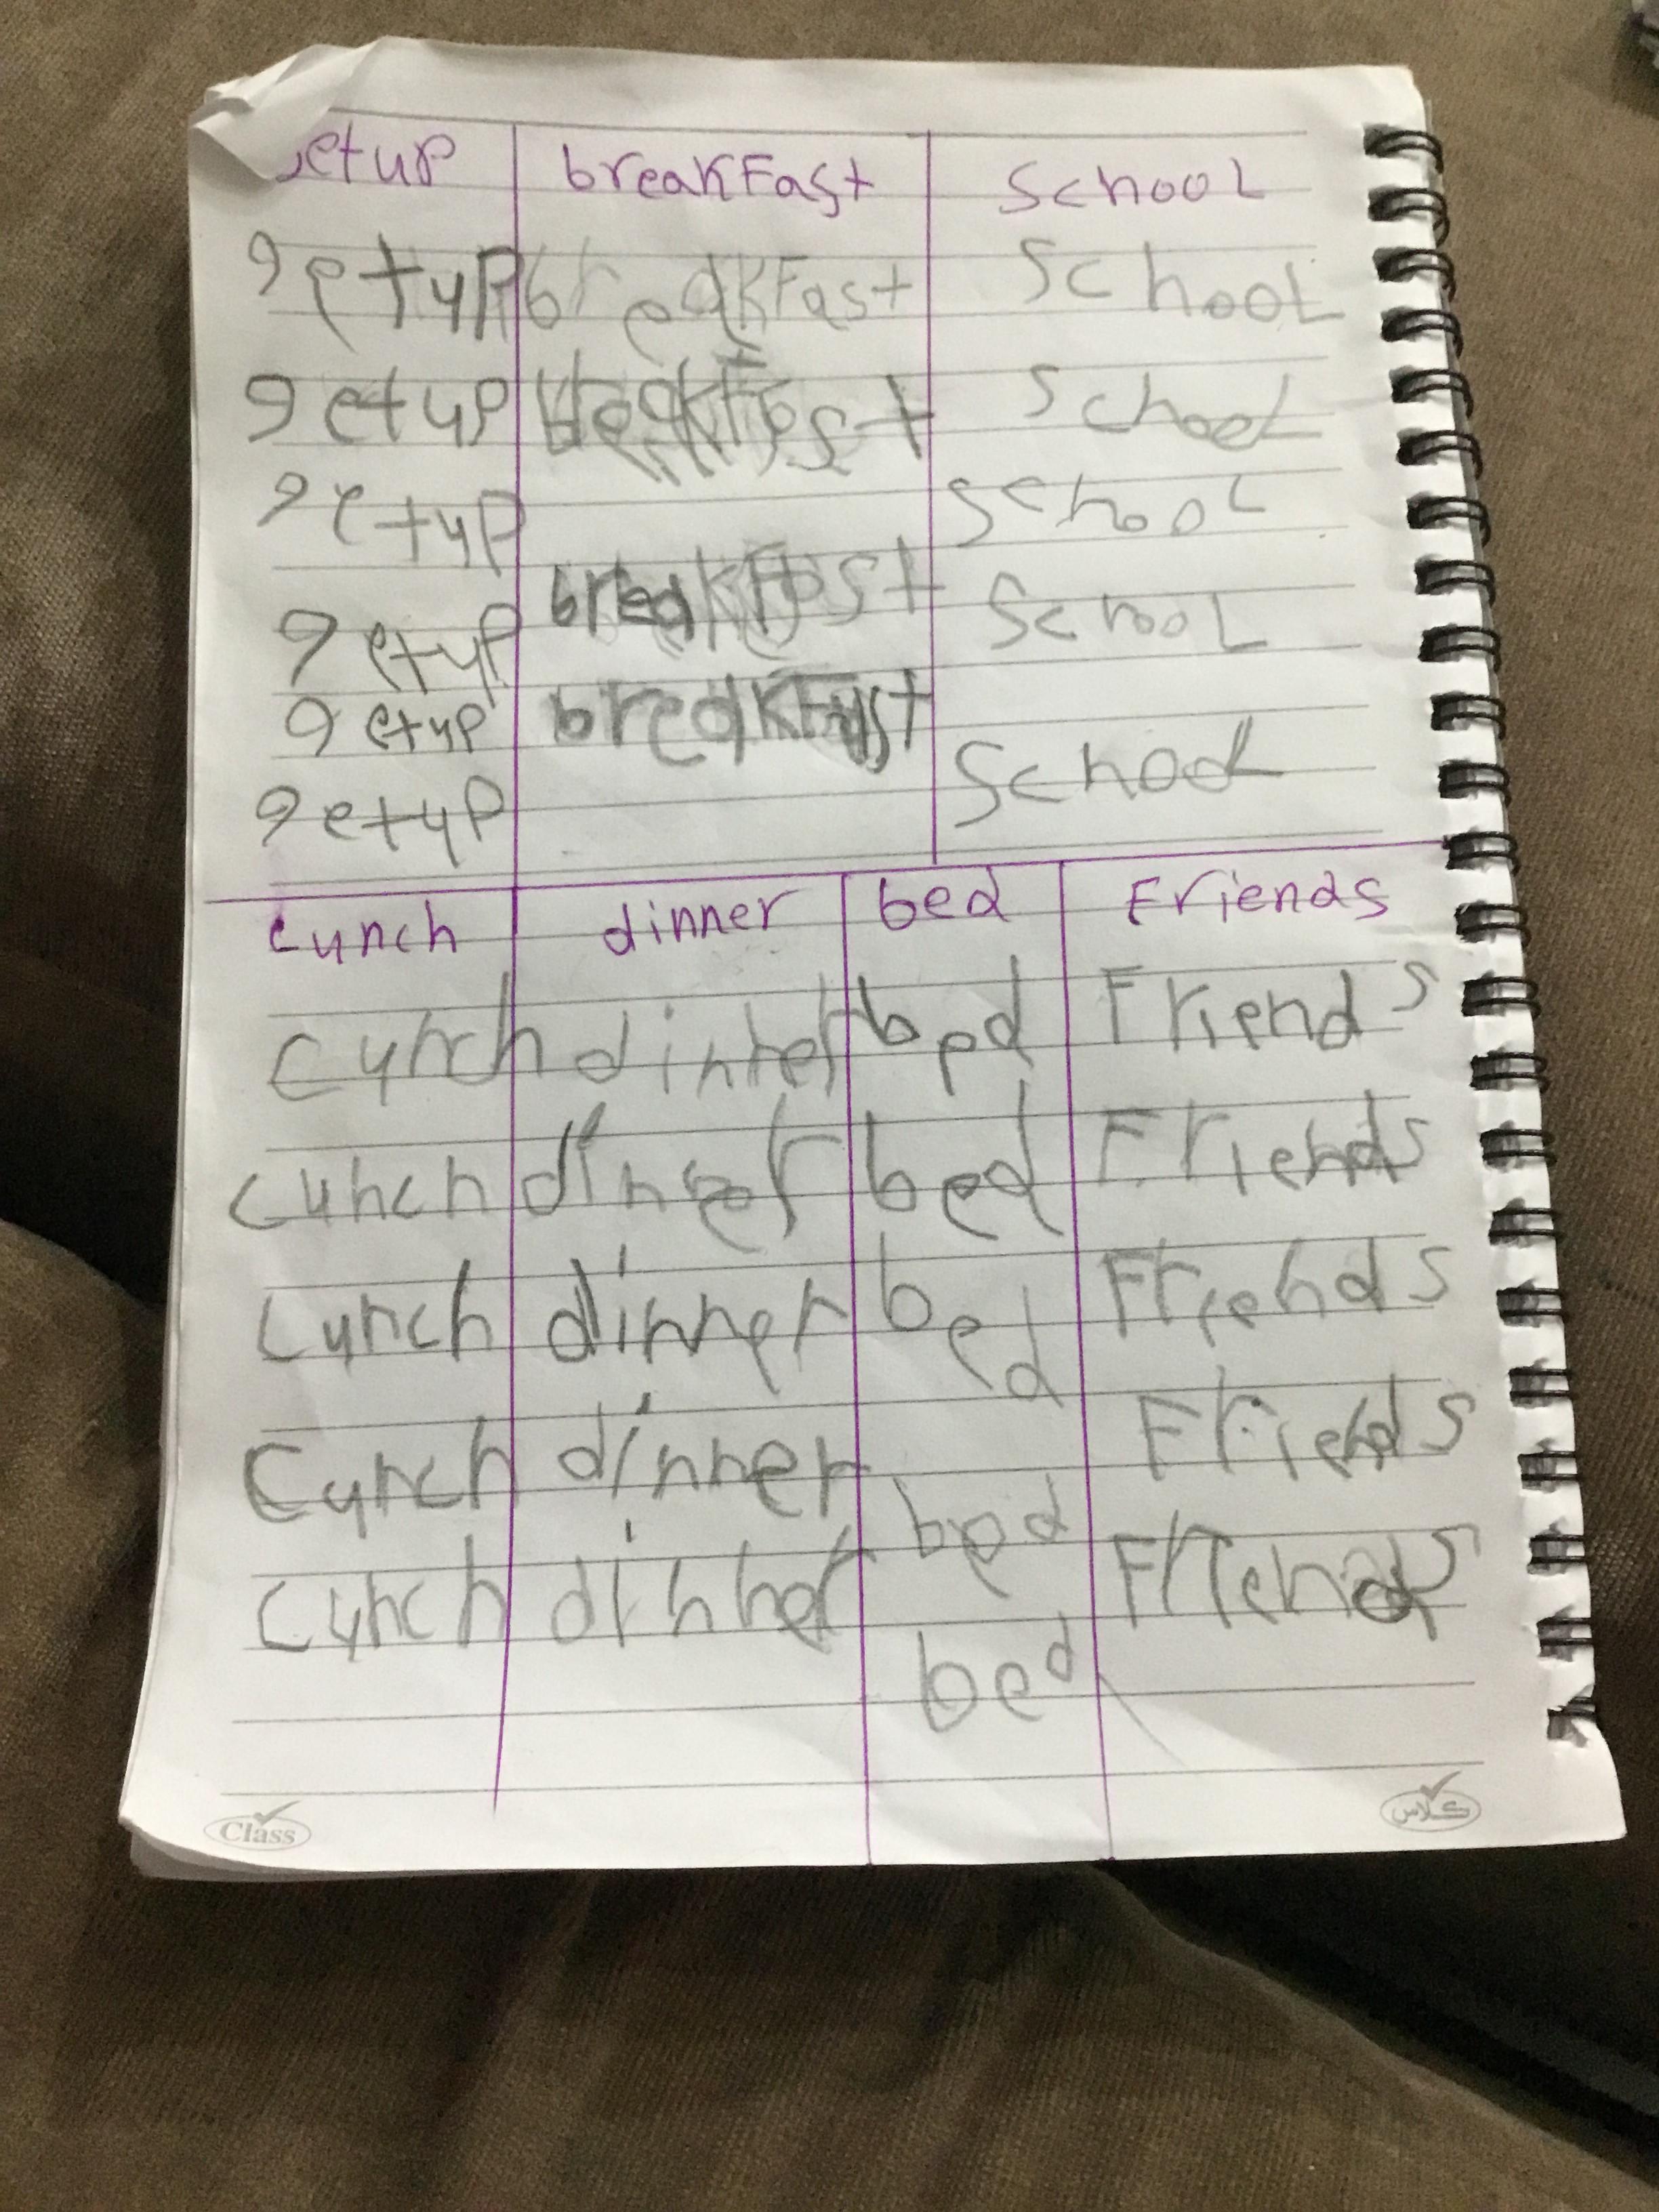 getup breakFast SchooL
getup breakFast SchooL
getup breakFast SchooL
getup SchooL
getup breakFast SchooL
getup breakFast SchooL
getup
Lunch dinner bed Friends
Lunch dinner bed Friends
Lunch dinner bed Friends
Lunch dinner bed Friends
Lunch dinner bed Friends
Lunch dinner bed Friends
Class كلاس